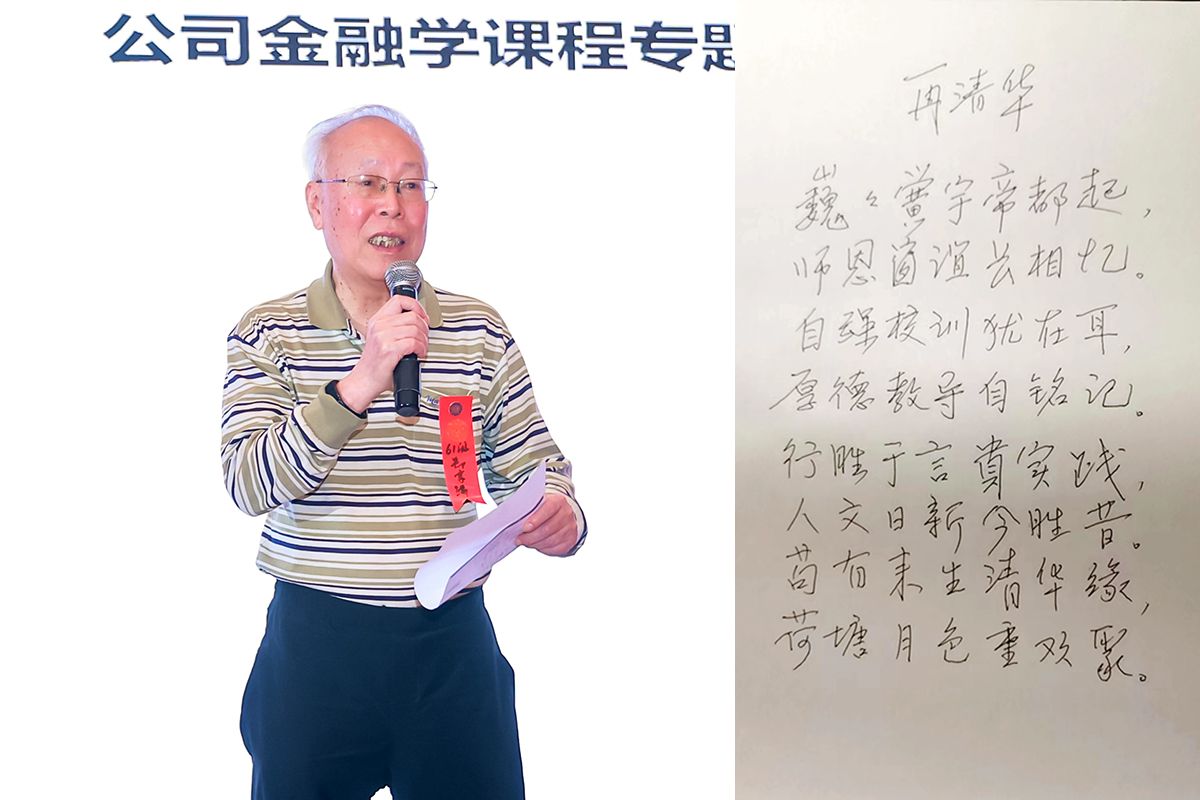 公司金融学课程专题
再清华
巍々黉宇帝都起，
师恩窗谊长相忆。
自强校训犹在耳，
厚德教导自铭记。
行胜于言贵实践，
人文日新今胜昔。
苟有来生清华缘，
荷塘月色重欢聚。